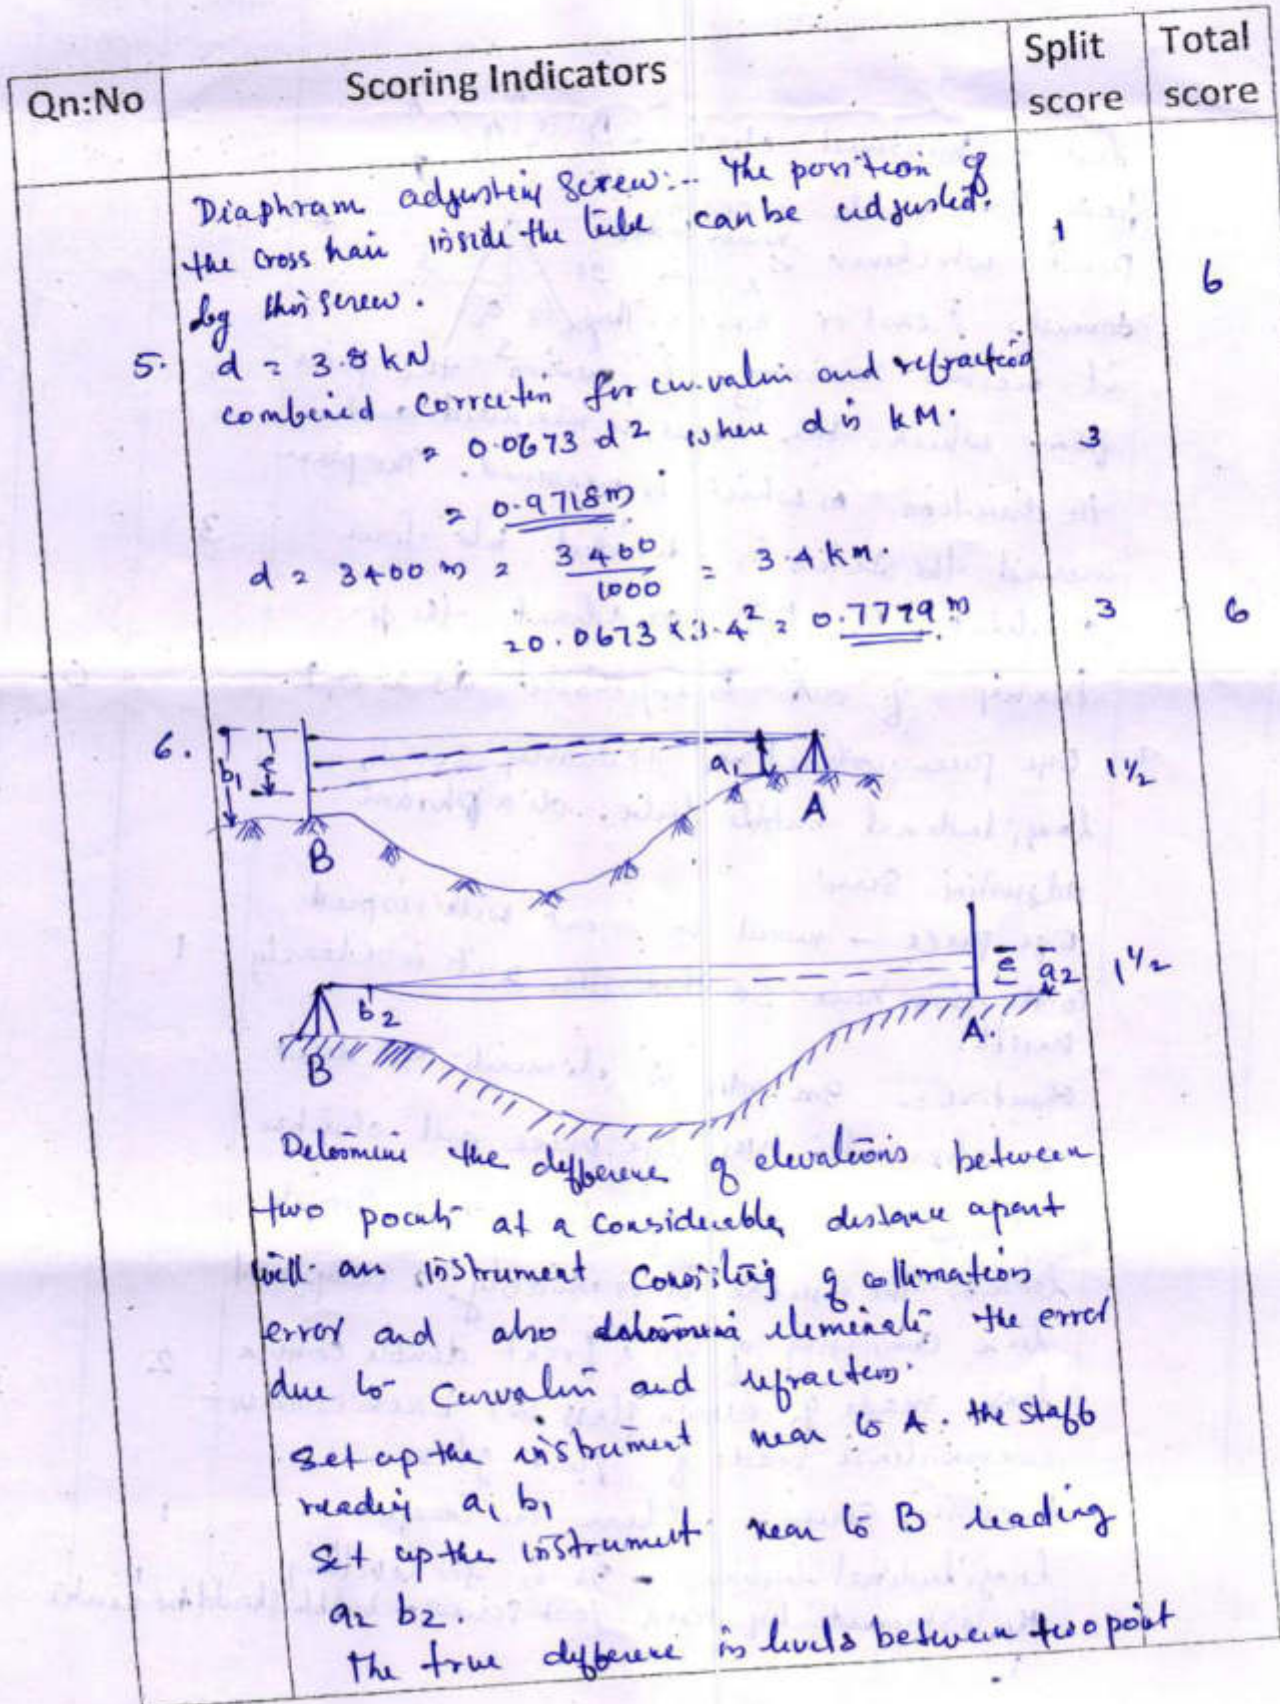 Qn:No Scoring Indicators Split score Total score
Diaphram adjusting Screw:- The position of
the cross hair inside the tube can be adjusted.
by this screw. 1 6
5. d = 3.8 kN
combined correction for curvature and refraction
= 0.0673 d2 where d is kM. 3
= 0.9718 m
d = 3400 m = 3400/1000 = 3.4 km.
= 0.0673 x 3.4² = 0.7779 m 3 6
6. b1 e a1 1 1/2
B A
b2 e a2 1 1/2
B A.
Determine the difference of elevations between
two points at a considerable distance apart
with an instrument consisting of collimation
error and also eleminate the error
due to curvature and refraction.
Set up the instrument near to A. the staff
reading a1 b1
Set up the instrument near to B reading
a2 b2.
The true difference in levels between two point